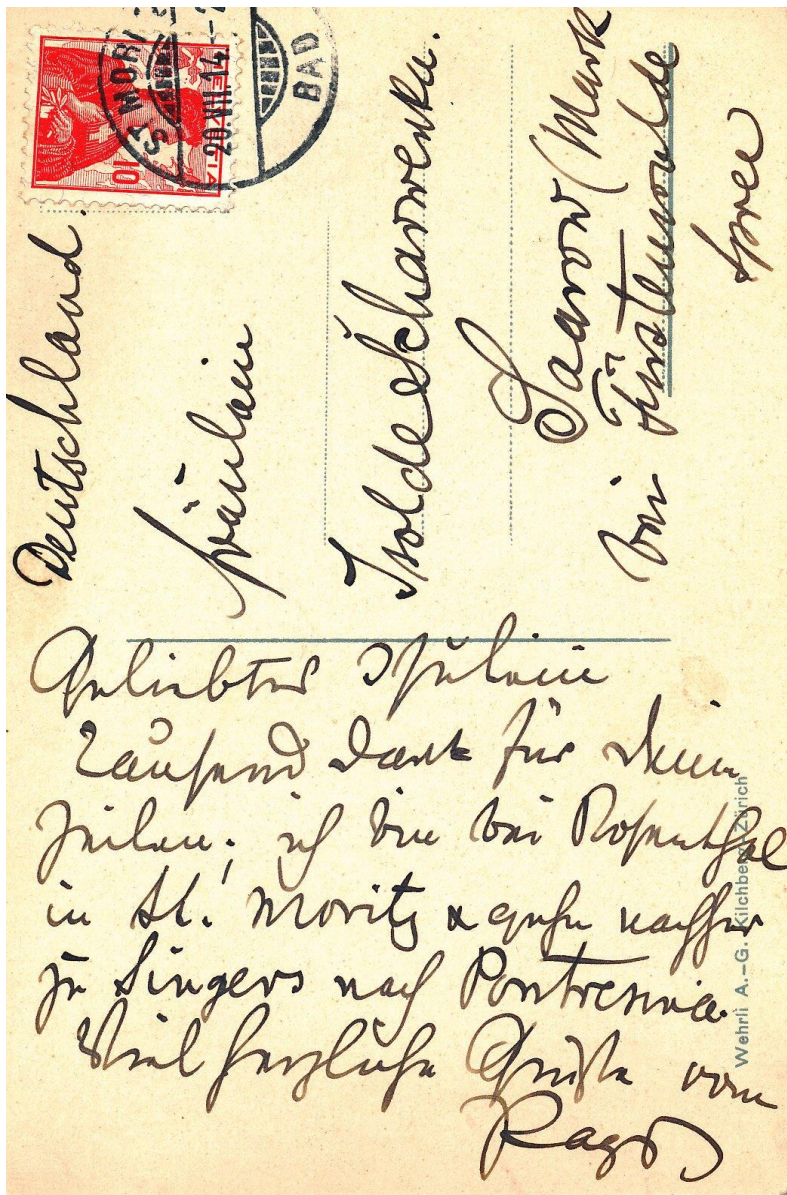 ST. MORITZ
BAD
20.VII.14
HELVETIA
10
Deutschland.
Fräulein
Isolde Scharwenka.
Saarow (Mark
bei Fürstenwalde
Spree
Geliebtes
Tausend Dank für Deine
Zeilen; ich bin bei Rosenthal
in St. Moritz & gehe nachher
zu Singers nach Pontresina.
Viel herzliche Grüße vom
Wehrli A.-G. Kilchberg Zürich